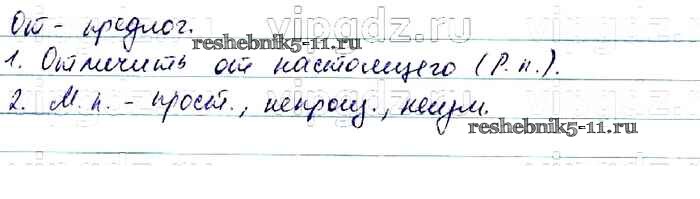 vipgdz.ru vipgdz.ru
От - предлог.
reshebnik5-11.ru
1. Отличить от настоящего (Р. п.).
2. М. п. - прост., непроиз., неизм.
reshebnik5-11.ru